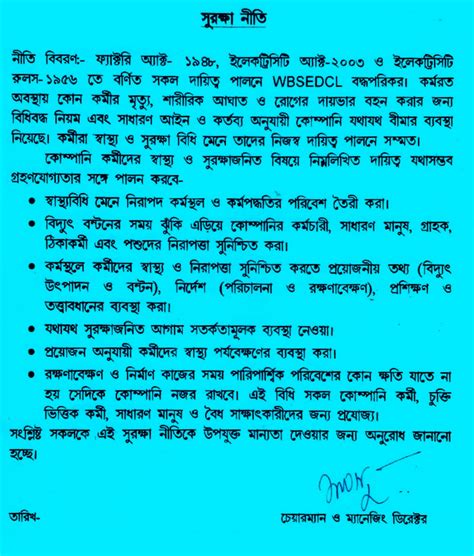 সুরক্ষা নীতি
নীতি বিবরণ:- ফ্যাক্টরি অ্যাক্ট- ১৯৪৮, ইলেকট্রিসিটি অ্যাক্ট-২০০৩ ও ইলেকট্রিসিটি
রুলস-১৯৫৬ তে বর্ণিত সকল দায়িত্ব পালনে WBSEDCL বদ্ধপরিকর। কর্মরত
অবস্থায় কোন কর্মীর মৃত্যু, শারীরিক আঘাত ও রোগের দায়ভার বহন করার জন্য
বিধিবদ্ধ নিয়ম এবং সাধারণ আইন ও কর্তব্য অনুযায়ী কোম্পানি যথাযথ বীমার ব্যবস্থা
নিয়েছে। কর্মীরা স্বাস্থ্য ও সুরক্ষা বিধি মেনে তাদের নিজস্ব দায়িত্ব পালনে সম্মত।
কোম্পানি কর্মীদের স্বাস্থ্য ও সুরক্ষাজনিত বিষয়ে নিম্নলিখিত দায়িত্ব যথাসম্ভব
গ্রহণযোগ্যতার সঙ্গে পালন করবে-
• স্বাস্থ্যবিধি মেনে নিরাপদ কর্মস্থল ও কর্মপদ্ধতির পরিবেশ তৈরী করা।
• বিদ্যুৎ বন্টনের সময় ঝুঁকি এড়িয়ে কোম্পানির কর্মচারী, সাধারণ মানুষ, গ্রাহক,
ঠিকাকর্মী এবং পশুদের নিরাপত্তা সুনিশ্চিত করা।
• কর্মস্থলে কর্মীদের স্বাস্থ্য ও নিরাপত্তা সুনিশ্চিত করতে প্রয়োজনীয় তথ্য (বিদ্যুৎ
উৎপাদন ও বন্টন), নির্দেশ (পরিচালনা ও রক্ষণাবেক্ষণ), প্রশিক্ষণ ও
তত্তাবধানের ব্যবস্থা করা।
• যথাযথ সুরক্ষাজনিত আগাম সতর্কতামূলক ব্যবস্থা নেওয়া।
• প্রয়োজন অনুযায়ী কর্মীদের স্বাস্থ্য পর্যবেক্ষণের ব্যবস্থা করা।
• রক্ষণাবেক্ষণ ও নির্মাণ কাজের সময় পারিপার্শ্বিক পরিবেশের কোন ক্ষতি যাতে না
হয় সেদিকে কোম্পানি নজর রাখবে। এই বিধি সকল কোম্পানি কর্মী, চুক্তি
ভিত্তিক কর্মী, সাধারণ মানুষ ও বৈধ সাক্ষাৎকারীদের জন্য প্রযোজ্য।
সংশ্লিষ্ট সকলকে এই সুরক্ষা নীতিকে উপযুক্ত মান্যতা দেওয়ার জন্য অনুরোধ জানানো
হচ্ছে।
তারিখ-
চেয়ারম্যান ও ম্যানেজিং ডিরেক্টর